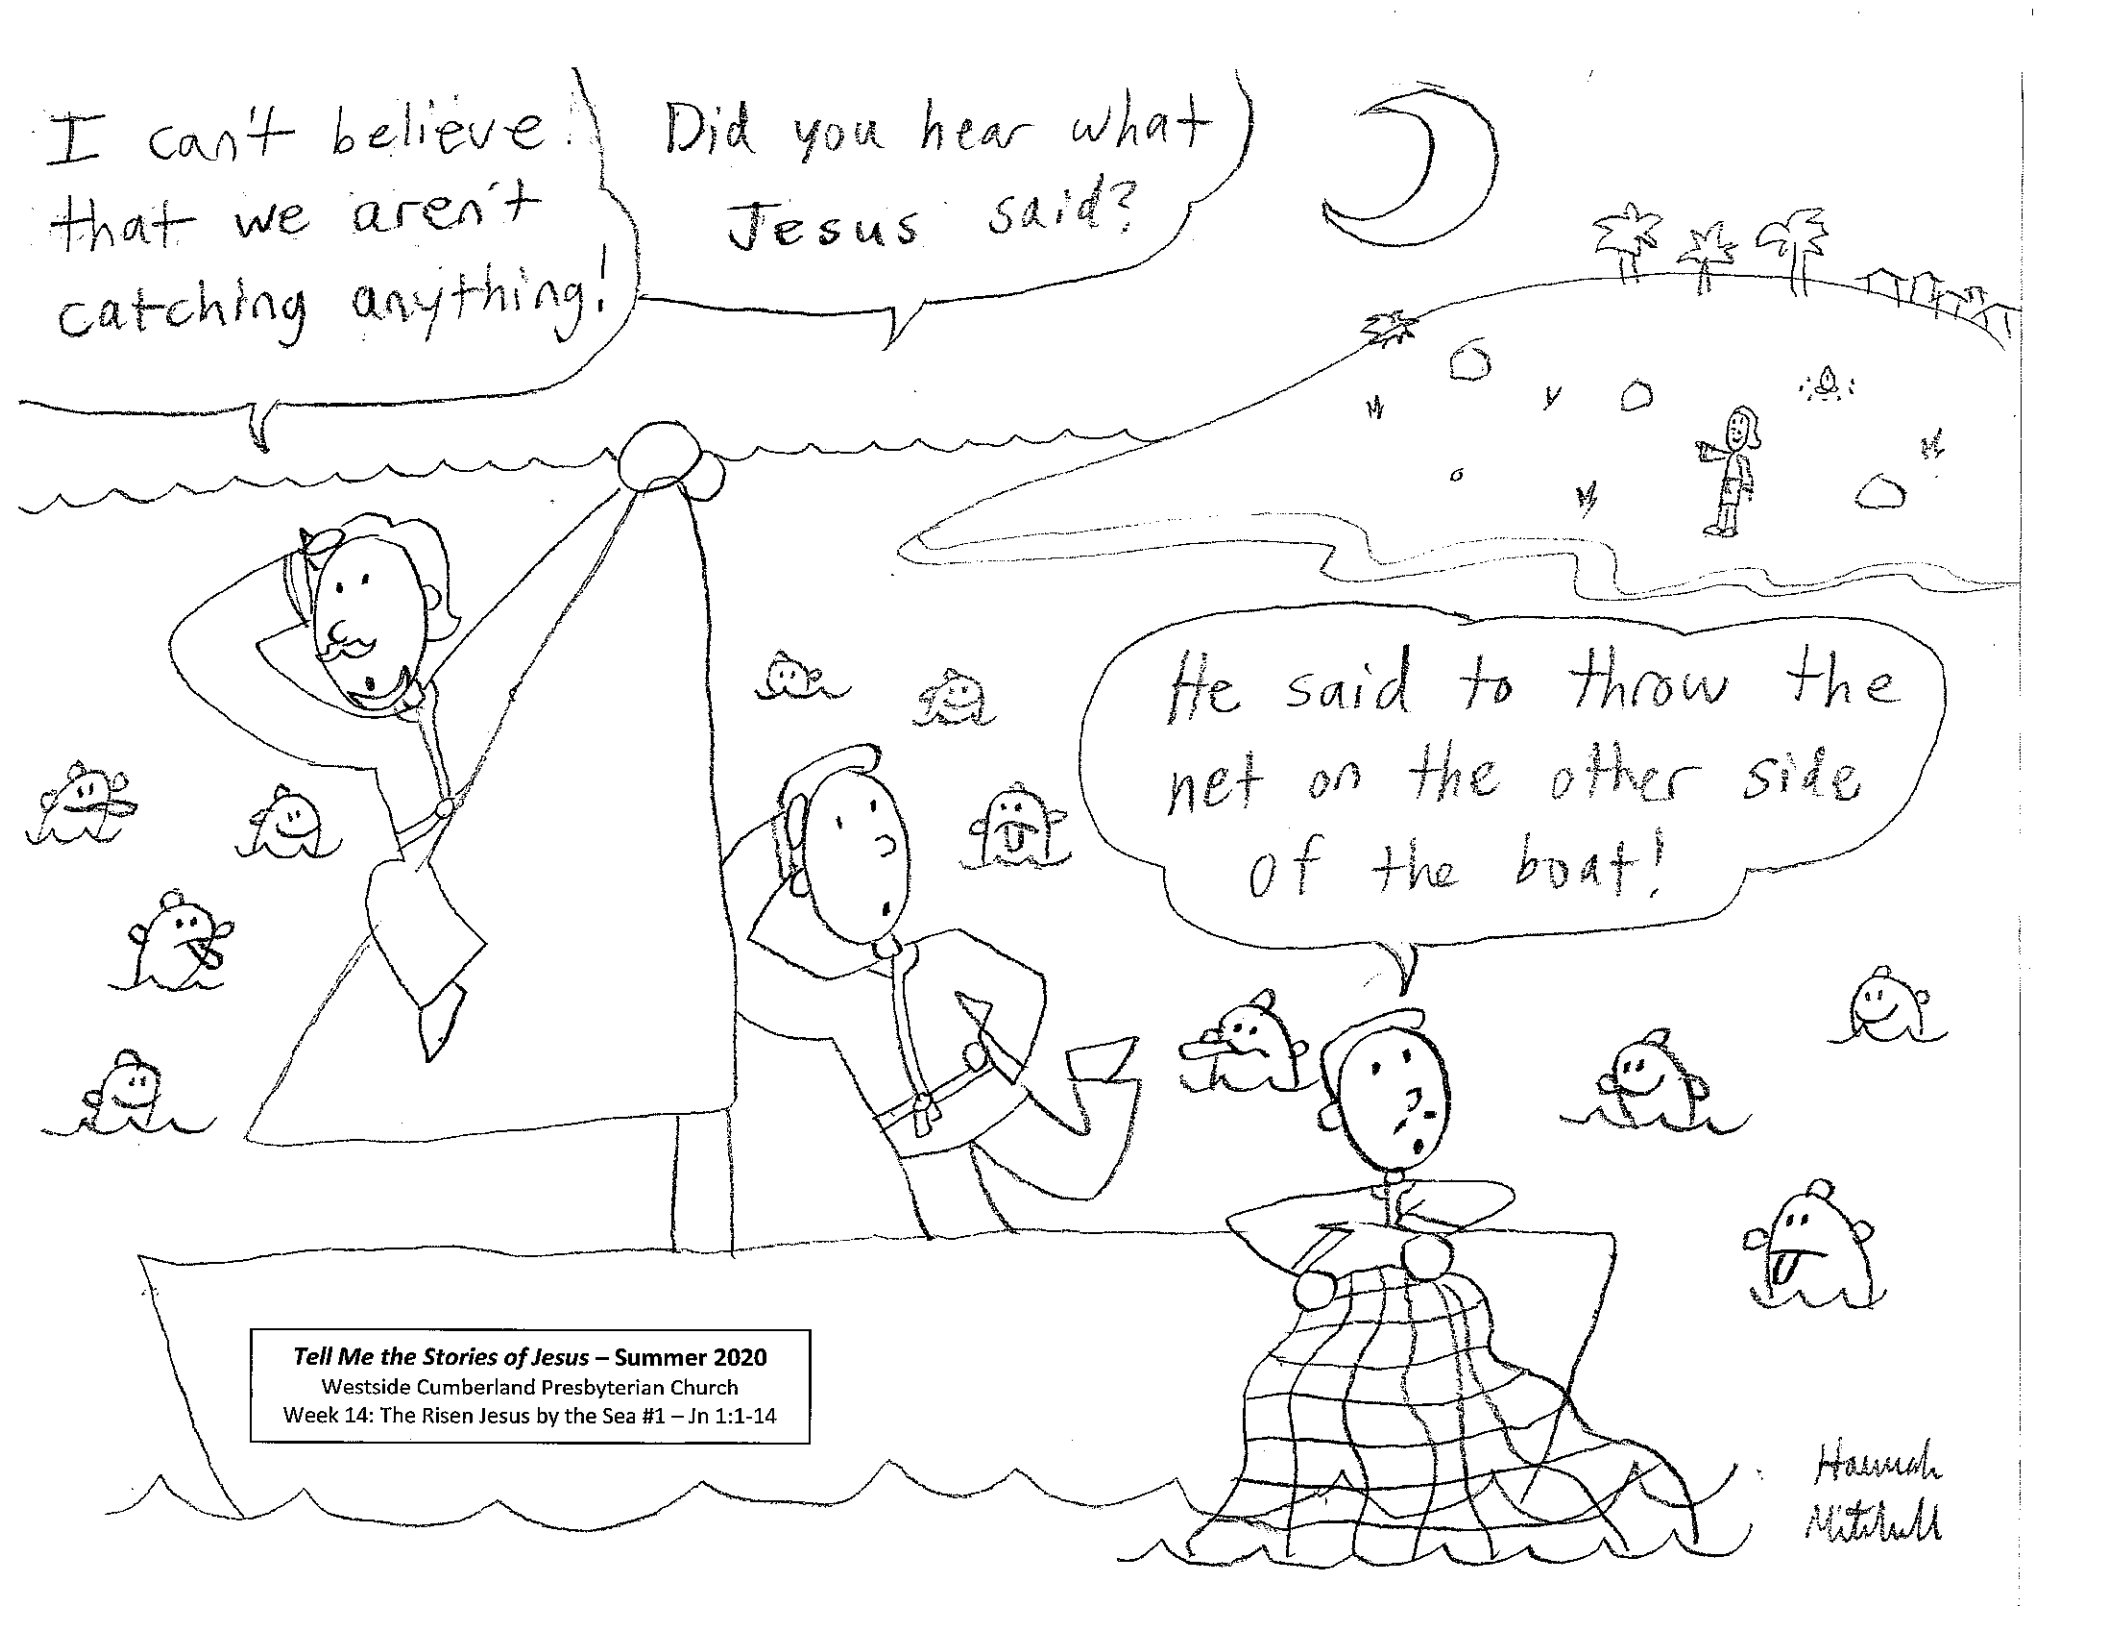 I can't believe
that we aren't
catching anything!
Did you hear what
Jesus said?
He said to throw the
net on the other side
of the boat!
Tell Me the Stories of Jesus – Summer 2020
Westside Cumberland Presbyterian Church
Week 14: The Risen Jesus by the Sea #1 – Jn 1:1-14
Hannah
Mitchell